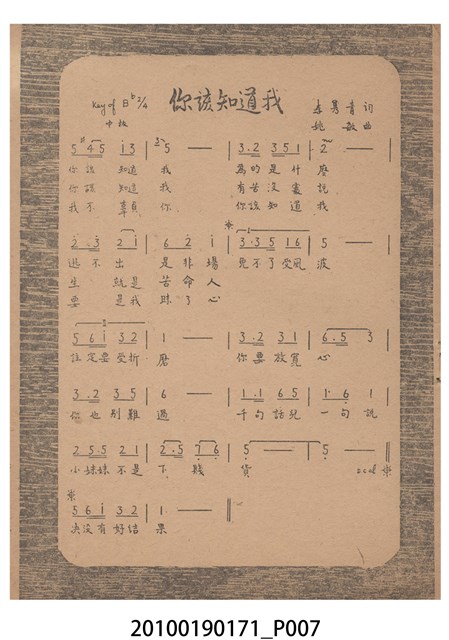 你該知道我
Key of B♭ 2/4
中板
李雋青 詞
姚敏 曲
5 #4 5 i 3 | 2 5 — | 3·2 3 5 1 | 2 —
你該 知道 我 為的是什 麼
你該 知道 我 有苦沒處 說
我不 辜負 你 你該知道 我
2·3 2 i | 6 2 i | 3·3 5 1 6 | 5 —
逃不出 是非場 免不了受風 波
生 就是 苦命人
要 是我 昧了心
5 6 i 3 2 | 1 — | 3·2 3 1 | 6·5 3
註定要受折 磨 你要放寬 心
3·2 3 5 | 6 — | 1·1 6 5 | 1·6 1
你也別難 過 千句話兒 一句說
2 5·5 2 1 | 2·5 7 6 | 5 — | 5 —
小妹妹不是 下賤 貨
※
5 6 i 3 2 | 1 — ‖
決沒有好結 果
20100190171_P007